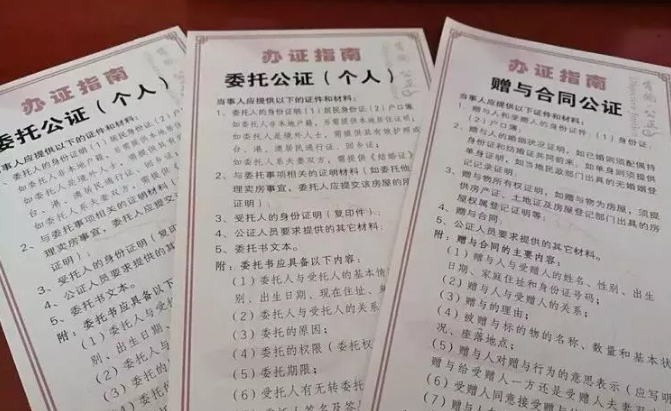 办证指南
委托公证（个人）
当事人应提供以下的证件和材料：
1、委托人的身份证明（1）居民身份证（2）户口
如委托人非本地户籍，
如委托人是境外人士，
台、港、澳居民通行证、回乡证；
如委托人系夫妻双方，需提供《结婚证》
2、与委托事项相关的证明材料（如委托
理卖房事宜，委托人应提交
证明）；
3、受托人的身份证明（复印
4、公证人员要求提供的其
5、委托书文本。
附：委托书应具备以下
（1）委托人与受
别、出生日期、
（2）委托人与
（3）委托的
（4）委托
（5）委
（6）
办证指南
委托公证（个人）
当事人应提供以下的证件和材料：
1、委托人的身份证明（1）居民身份证（2）户口簿；
如委托人非本地户籍，需提供本地居住证明；
如委托人是境外人士，需提供其有效护照或
台、港、澳居民通行证、回乡证；
如委托人系夫妻双方，需提供《结婚证》
2、与委托事项相关的证明材料（如委托他
理卖房事宜，委托人应提交该房屋的所
证明）；
3、受托人的身份证明（复印件）；
4、公证人员要求提供的其它材料；
5、委托书文本。
附：委托书应具备以下内容：
（1）委托人与受托人的基本情
别、出生日期、现在住址、
（2）委托人与受托人的关系
（3）委托的原因；
（4）委托的权限（委托权
（5）委托期限；
（6）受托人有无转委托
办证指南
赠与合同公证
当事人应提供以下的证件和材料：
1、赠与人和受赠人的身份证件：（1）身份证、
（2）户口簿。
2、赠与人的婚姻状况证明，如已婚则需配偶持
身份证和结婚证共同前来，如单身则须提供
单身证明，如当地民政部门出具的无婚姻登
记证明；
3、赠与物所有权证明，如赠与物为房屋，须提
供房产证、土地证及房屋登记部门出具的房
屋权属登记证明等；
4、赠与合同。
5、公证人员要求提供的其它材料。
附：赠与合同的主要内容：
（1）赠与人与受赠人的姓名、性别、出生
日期、家庭住址和身份证号码；
（2）赠与人与受赠人的关系；
（3）赠与的理由；
（4）被赠与标的物的名称、数量和基本状
况、座落地点；
（5）赠与人对赠与行为的意思表示（应写明
赠与给受赠人一方还是受赠人夫妻
（6）受赠人同意接受赠与